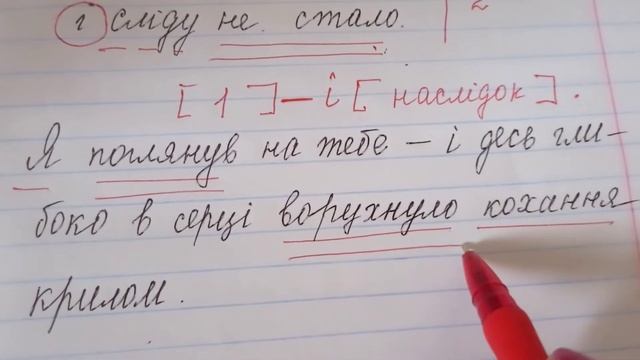 і сліду не стало. | 2
[ 1 ] – і [ наслідок ].
Я поглянув на тебе – і десь гли-
боко в серці ворухнуло кохання
крилом.